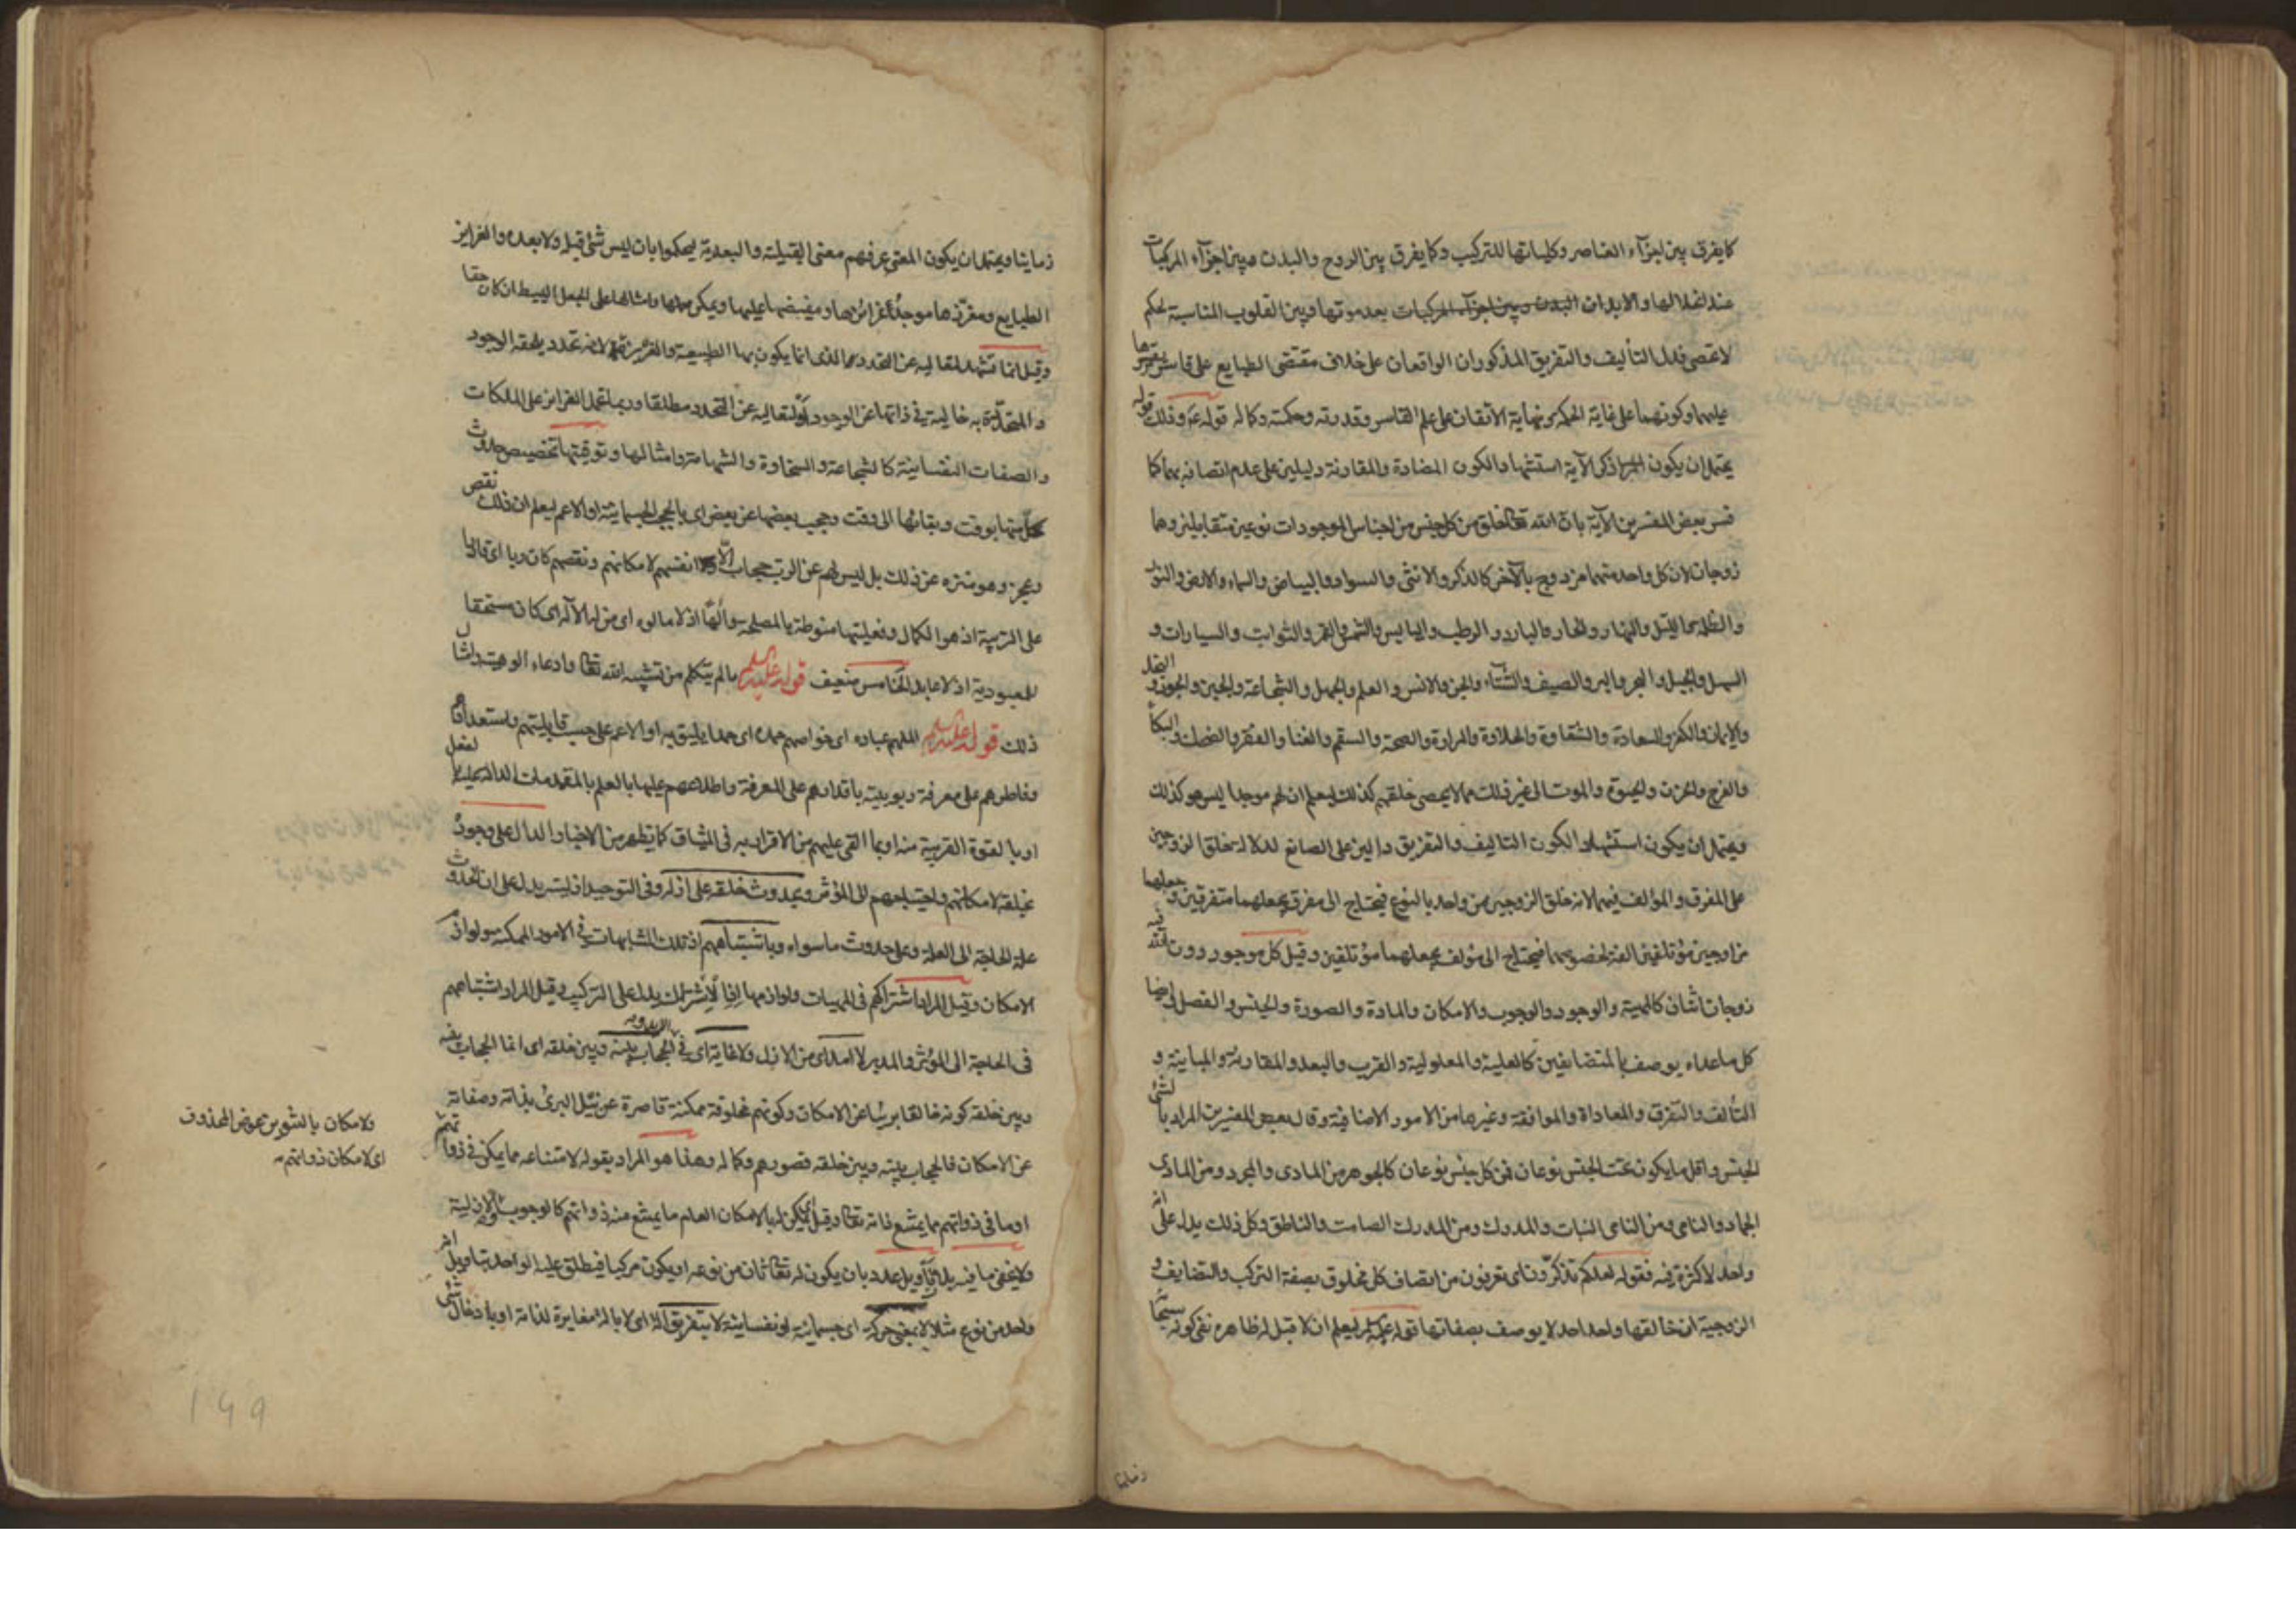 كما يفرق بين اجزاء العناصر وكلياتها للتركيب وكما يفرق بين الروح والبدن وبين اجزاء المركبات
عند انحلالها والابدان البدن وبين اجزاء المركبات بعد موتها وبين القلوب المناسبة لحكم
لا تحصى فدل التأليف والتفريق المذكوران الواقعان على خلاف مقتضى الطبايع على قاسر يقسرها
عليهما وكونهما على غاية الحكمة ونهاية الاتقان على علم القاسر وقدرته وحكمته وكماله قوله عم وذلك قوله
يحتمل ان يكون المراد ذكر الآية استشهادا لكون المضادة والمقارنة دليلين على عدم اتصافه بهما كما
فسر بعض المفسرين الآية بان الله تعالى خلق من كل جنس من اجناس الموجودات نوعين متقابلين وهما
زوجان لان كل واحد منهما مزدوج بالآخر كالذكر والانثى والسواد والبياض والسماء والارض والنور
والظلمة والليل والنهار والحار والبارد والرطب واليابس والشمس والقمر والثوابت والسيارات و
السهل والجبل والبحر والبر والصيف والشتاء والجن والانس والعلم والجهل والشجاعة والجبن والجود و البخل
والايمان والكفر والسعادة والشقاوة والحلاوة والمرارة والصحة والسقم والغنا والفقر والضحك والبكاء
والفرح والحزن والحيوة والموت الى غير ذلك مما لا يحصى خلقهم كذلك ليعلم ان لهم موجدا ليس هو كذلك
ويحتمل ان يكون استشهادا لكون التاليف والتفريق دالين على الصانع لدلالة خلق الزوجين
على المفرق والمؤلف فيهما لانه خلق الزوجين من واحد بالنوع فيحتاج الى مفرق يجعلهما متفرقين و جعلهما
مزاوجين مؤتلفين الفة لخصوصهما فيحتاج الى مؤلف يجعلهما مؤتلفين وقيل كل موجود دون الله فيه
زوجان اثنان كالمهية والوجود والوجوب والامكان والمادة والصورة والجنس والفصل وايضا
كل ما عداه يوصف بالمتضايفين كالعلية والمعلولية والقرب والبعد والمقارنة والمباينة و
التألف والتفرق والمعاداة والموافقة وغيرها من الامور الاضافية وقال بعض المفسرين المراد بالشئ
الجنس واقل ما يكون تحت الجنس نوعان فمن كل جنس نوعان كالجوهر من المادى والمجرد ومن المادى
الجماد والنامى ومن النامى النبات والمدرك ومن المدرك الصامت والناطق وكل ذلك يدل على انه
واحد لا كثرة فيه فقوله لعلكم تذكرون اى تعرفون من اتصاف كل مخلوق بصفة التركب والتضايف و
الزوجية ان خالقها واحد احد لا يوصف بصفاتها قوله عليه السلام ليعلم ان لا قبل له ظاهره نفى كونه
زمانيا
زمانيا ويحتمل ان يكون المعنى عرفهم معنى القبلية والبعدية ليحكموا بان ليس شئ قبله ولا بعده والغرايز
الطبايع ومغرزها موجد غرائزها ومفيضها عليها ويمكن حملها وامثالها على الجعل البسيط ان كان حقا
وقيل انما تشهد لتعاليه عن التحدد مما الذى انما يكون بها الطبيعة والغريزة لانه تحدد يلحقه الوجود
والمتحدد به خالية فى ذاتها عن الوجود او لتعاليه عن التحدد مطلقا وربما تحمل الغرايز على الملكات
والصفات النفسانية كالشجاعة والسخاوة والشهامة وامثالها وتوقيتها تخصيص حدوث
كل منها بوقت وبقائها الى وقت وحجب بعضها عن بعض اى بالحجب الجسمانية او الاعم ليعلم ان ذلك نقص
وعجز وهو منزه عن ذلك بل ليس لهم عن الرب حجاب الا انفسهم لامكانهم ونقصهم كان ربا اى قادرا
على التربية اذ هو الكمال وفعليتها منوطة بالمصلحة والها اذ لا مالوه اى من له الاله اى كان مستحقا
للمعبودية اذ لا عابد الخامس ضعيف قوله عليه السلام ما لم يتكلم من تشبيه الله تعالى وادعاء الوهيته وامثال
ذلك قوله عليه السلام الملهم عباده اى خواصهم حمده اى حمدا يليق به او الاعم على حسب قابليتهم واستعدادهم
وفاطرهم على معرفة ربوبيته باقدارهم على المعرفة واطلاعهم عليها بالعلم بالمقدمات الدالة عليها بالفعل
او بالقوة القريبة منه او بما القى عليهم من الاقرار به فى الميثاق كما يظهر من الاخبار الدال على وجوده
بخلقه لامكانهم واحتياجهم الى المؤثر وبحدوث خلقه على ازله وفى التوحيد ازليته يدل على ان الحدوث
علة الحاجة الى العلة وعلى حدوث ما سواه وباشتباههم اذ تلك المشابهات فى الامور الممكنة ولوازم
الامكان وقيل المراد اشتراكهم فى المهيات ولوازمها اذ الاشتراك يدل على التركيب وقيل المراد اشتباههم
فى الحاجة الى المؤثر والمدبر لا امد اى من الازل ولا غاية اى فى الابد وبه الحجاب بينه وبين خلقه اى انما الحجاب بينه
وبين خلقه كونه خالقا بريئا عن الامكان وكونهم مخلوقة ممكنة قاصرة عن نيل البرئ بذاته وصفاته
عن الامكان فالحجاب بينه وبين خلقه قصورهم وكماله وهذا هو المراد بقوله لامتناعه مما يمكن فى ذواتهم
او ما فى ذواتهم مما يمتنع ذاته تعالى وقيل اى يمكن له بالامكان العام ما يمتنع منه ذواتهم كالوجوب والازلية
ولا يخفى ما فيه بلا تأويل عدد بان يكون له تعالى ثان من نوعه او يكون مركبا فيطلق عليه الواحد بتاويل انه
واحد من نوع مثلا لا بمعنى حركة اى جسمانية او نفسانية لا بتفريق آلة اى لا بالة مغايرة لذاته او بادخال شئ
ولامكان بالتنوين عوض المحذوف
اى لامكان ذواتهم
۱۶۹